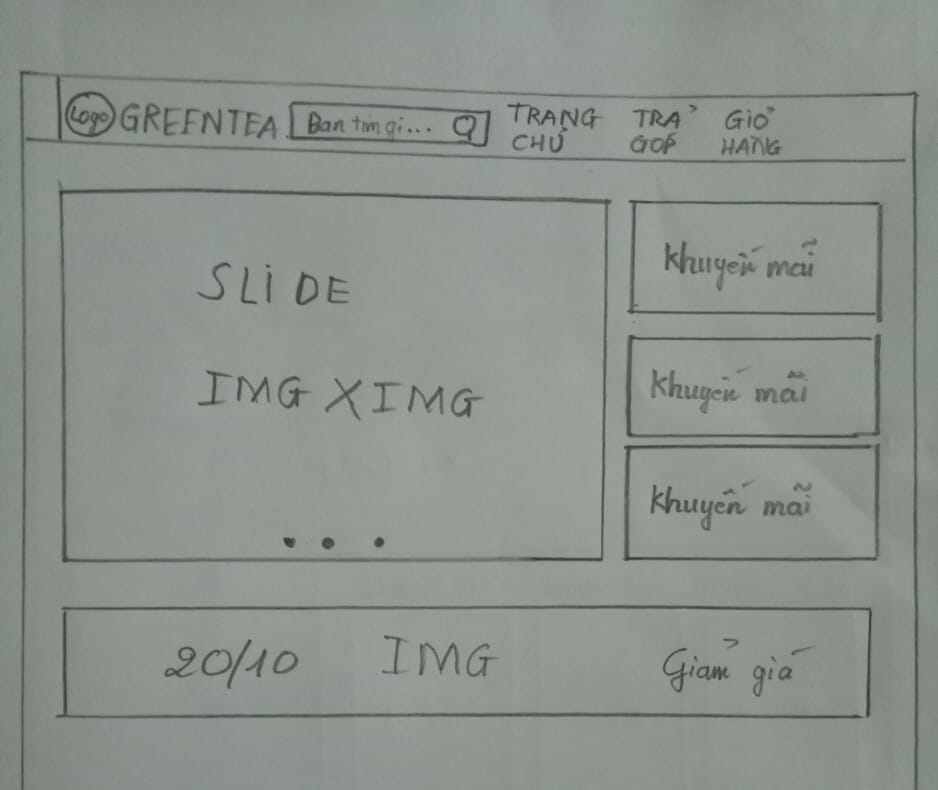 Logo GREENTEA Bạn tìm gì... TRANG CHỦ TRẢ GÓP GIỎ HÀNG
SLIDE
IMG X IMG
Khuyến mãi
Khuyến mãi
Khuyến mãi
20/10 IMG Giảm giá